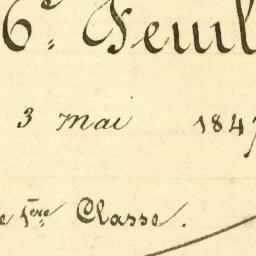 6e. Feuil
3 mai 1847
e 1ère Classe.